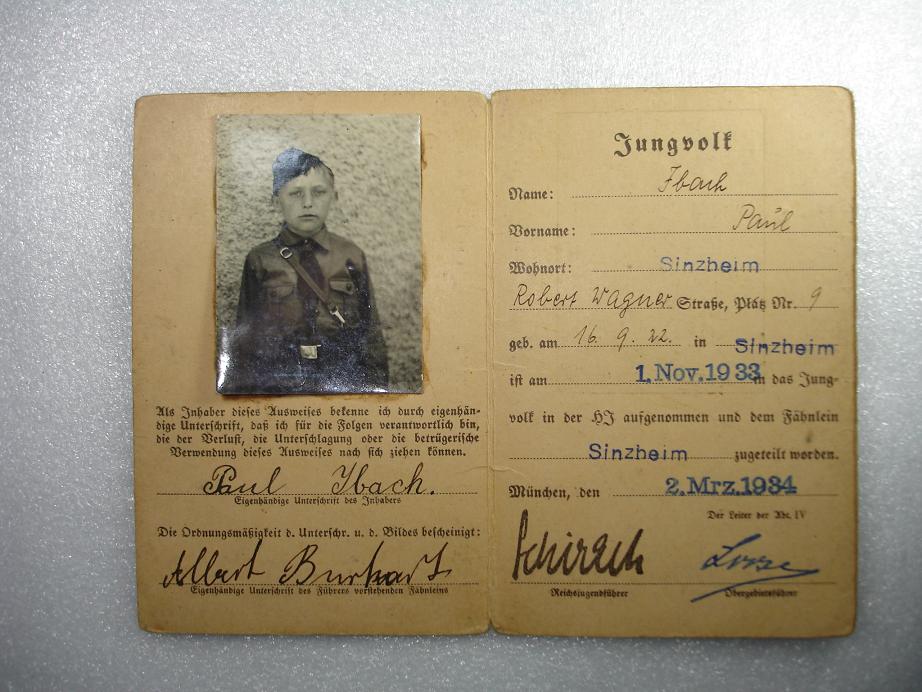 Als Inhaber dieses Ausweises bekenne ich durch eigenhän-
dige Unterschrift, daß ich für die Folgen verantwortlich bin,
die der Verlust, die Unterschlagung oder die betrügerische
Verwendung dieses Ausweises nach sich ziehen können.
Paul Ibach.
Eigenhändige Unterschrift des Inhabers
Die Ordnungsmäßigkeit d. Unterschr. u. d. Bildes bescheinigt:
Albert Burkart
Eigenhändige Unterschrift des Führers vorstehenden Fähnleins
Jungvolk
Name: Ibach
Vorname: Paul
Wohnort: Sinzheim
Robert Wagner Straße, Platz Nr. 9
geb. am 16. 9. 22. in Sinzheim
ist am 1. Nov. 1933 in das Jung-
volk in der HJ aufgenommen und dem Fähnlein
Sinzheim zugeteilt worden.
München, den 2. Mrz. 1934
Der Leiter der Abt. IV
Schirach
Reichsjugendführer
Obergebietsführer